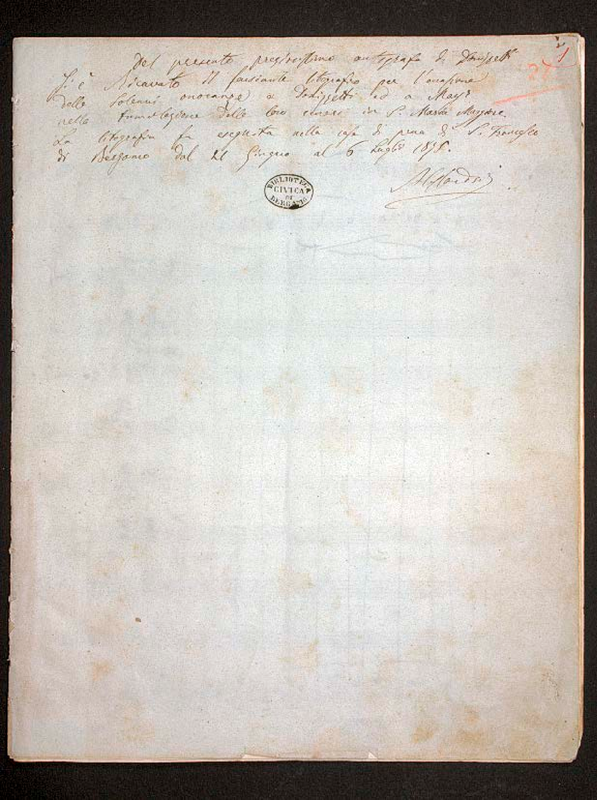 Del presente pregevolissimo autografo di Donizetti
si è ricavato il facsimile litografico per l'occasione
delle solenni onoranze a Donizetti ed a Mayr
nella tumulazione delle loro ceneri in S. Maria Maggiore.
La litografia fu eseguita nella casa di pena di S. Francesco
di Bergamo dal 21 Giugno al 6 Luglio 1875.
BIBLIOTECA
CIVICA
DI
BERGAMO